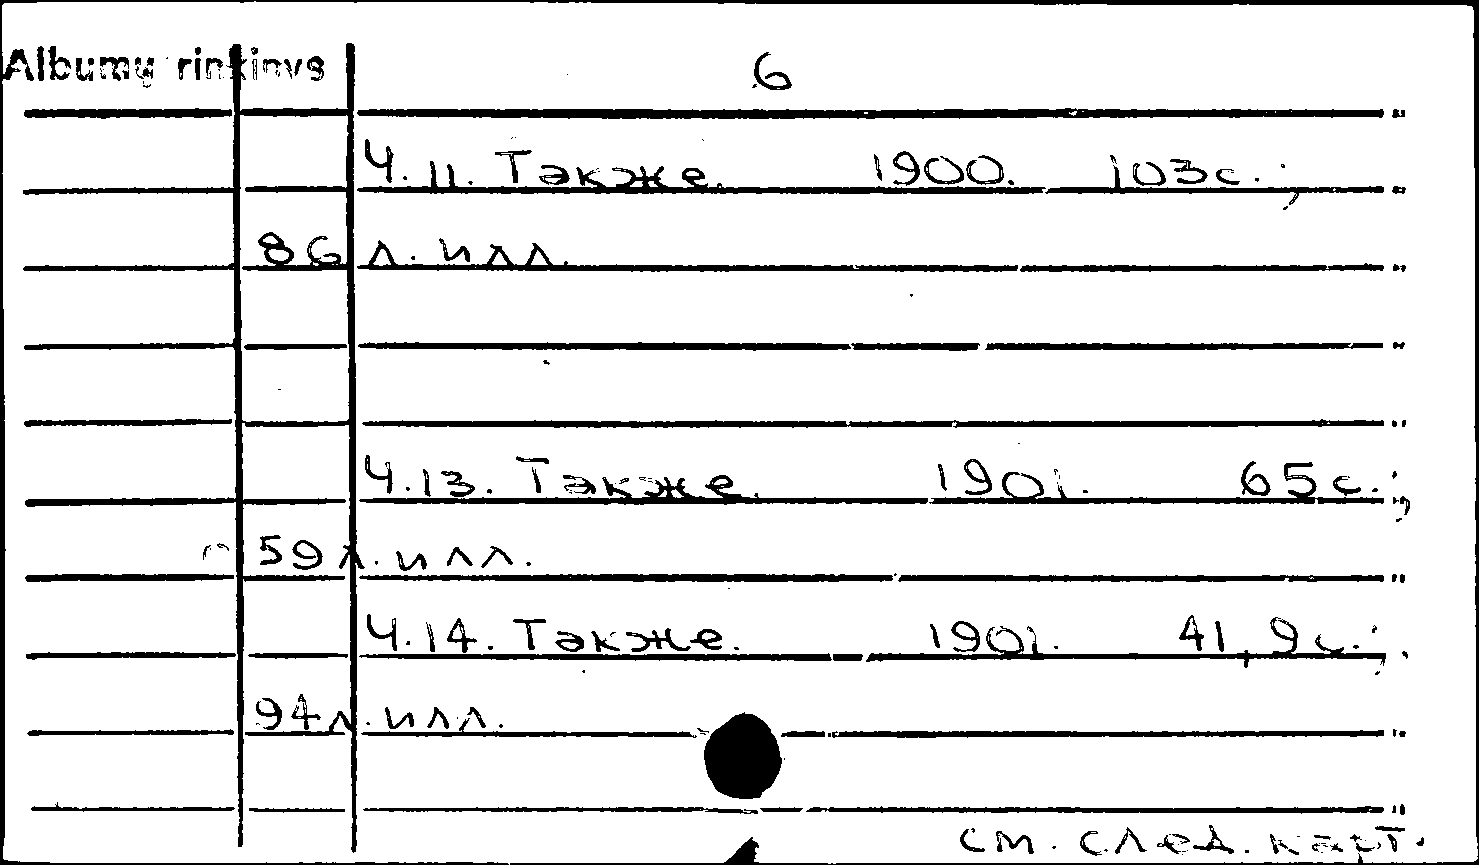 Albumų rinkinys
6
Ч.11. Также. 1900. 103с.;
86 л. илл.
Ч.13. Также. 1901. 65с.;
59 л. илл.
Ч.14. Также. 1901. 41, 9с.;
94 л. илл.
см. след. карт.